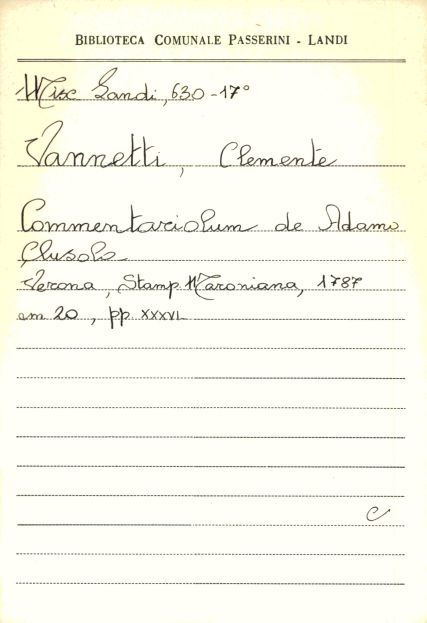 BIBLIOTECA COMUNALE PASSERINI - LANDI
Misc Landi, 630-17°
Vannetti, Clemente
Commentariolum de Adamo
Clusolo
Verona, Stamp. Maroniana, 1787
cm 20, pp. XXXVI
C